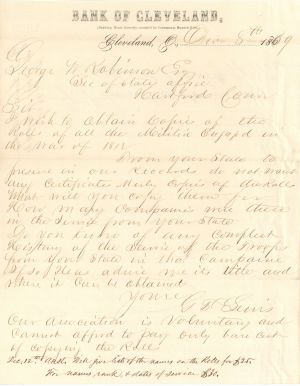 BANK OF CLEVELAND,
Cleveland, O., 5th 1869
George W. Robinson Esq
Sec of State office
Hartford Conn
Sir
I Wish to Obtain Copies of the
Rolls of all the Militia Engaged in
the War of 1812
From your State to
preserve in our Records do not want
any Certificates Merely Copies of the Rolls
What will you copy them for
How Many Companies were there
in the Service from your State
Do you know of any Compleat
History of the Service of the Troops
From your State in that Campaine
If So Pleas advise me its title and
where it can be obtained
Yours
Our Association is Voluntary and
Cannot afford to pay only bare cost
of copying the Rolls
Dec. 12th Will give lists of the names on the Rolls for $25.
For names, rank & dates of service